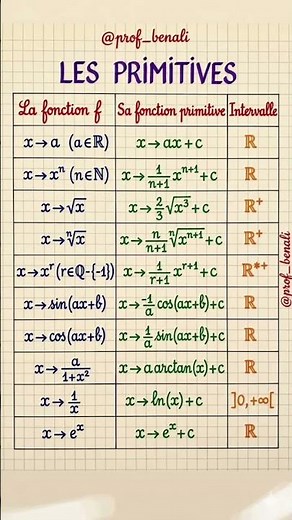 @prof_benali
LES PRIMITIVES
La fonction f | Sa fonction primitive | Intervalle
x→a (a∈ℝ) | x→ax+c | ℝ
x→xⁿ (n∈ℕ) | x→1/(n+1) xⁿ⁺¹+c | ℝ
x→√x | x→2/3 √(x³)+c | ℝ⁺
x→ⁿ√x | x→n/(n+1) ⁿ√(xⁿ⁺¹)+c | ℝ⁺
x→xʳ (r∈ℚ-{-1}) | x→1/(r+1) xʳ⁺¹+c | ℝ*⁺
x→sin(ax+b) | x→-1/a cos(ax+b)+c | ℝ
x→cos(ax+b) | x→1/a sin(ax+b)+c | ℝ
x→a/(1+x²) | x→a arctan(x)+c | ℝ
x→1/x | x→ln(x)+c | ]0,+∞[
x→eˣ | x→eˣ+c | ℝ
@prof_benali